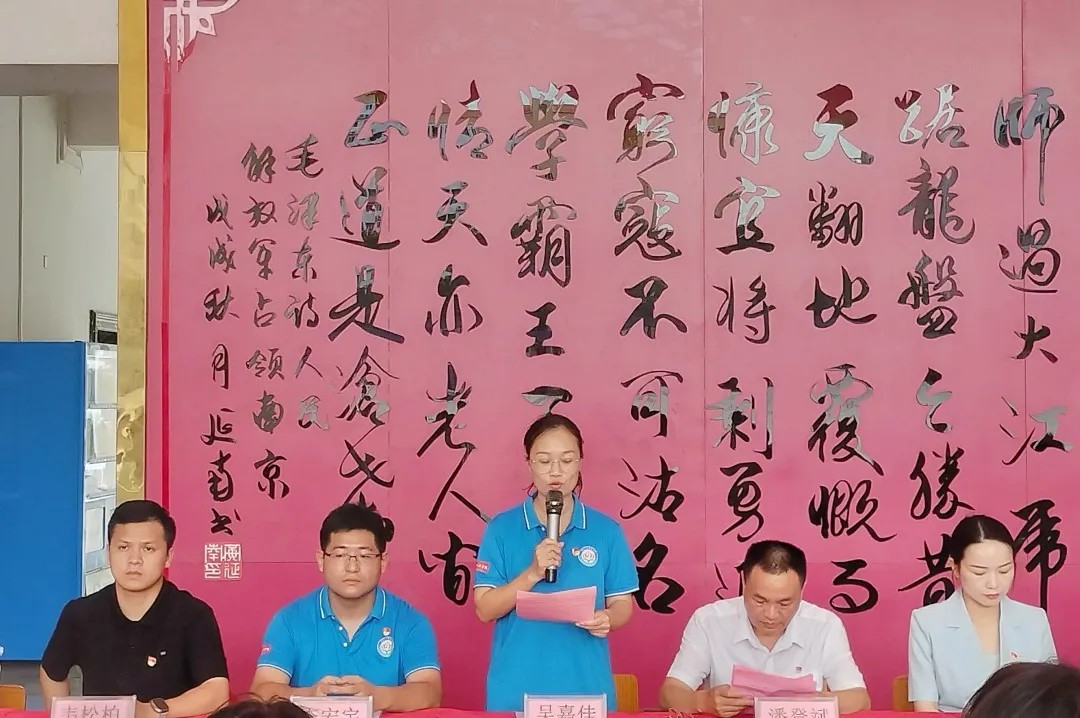 师过大江虎
踞龍盤今勝昔
天翻地覆慨而
慷宜将剩勇追
窮寇不可沽名
學霸王不
情天亦老人间
正道是滄桑
毛泽东诗人民
解放军占领南京
戊戌秋月延南书
韦松柏
吴嘉佳
潘登斌